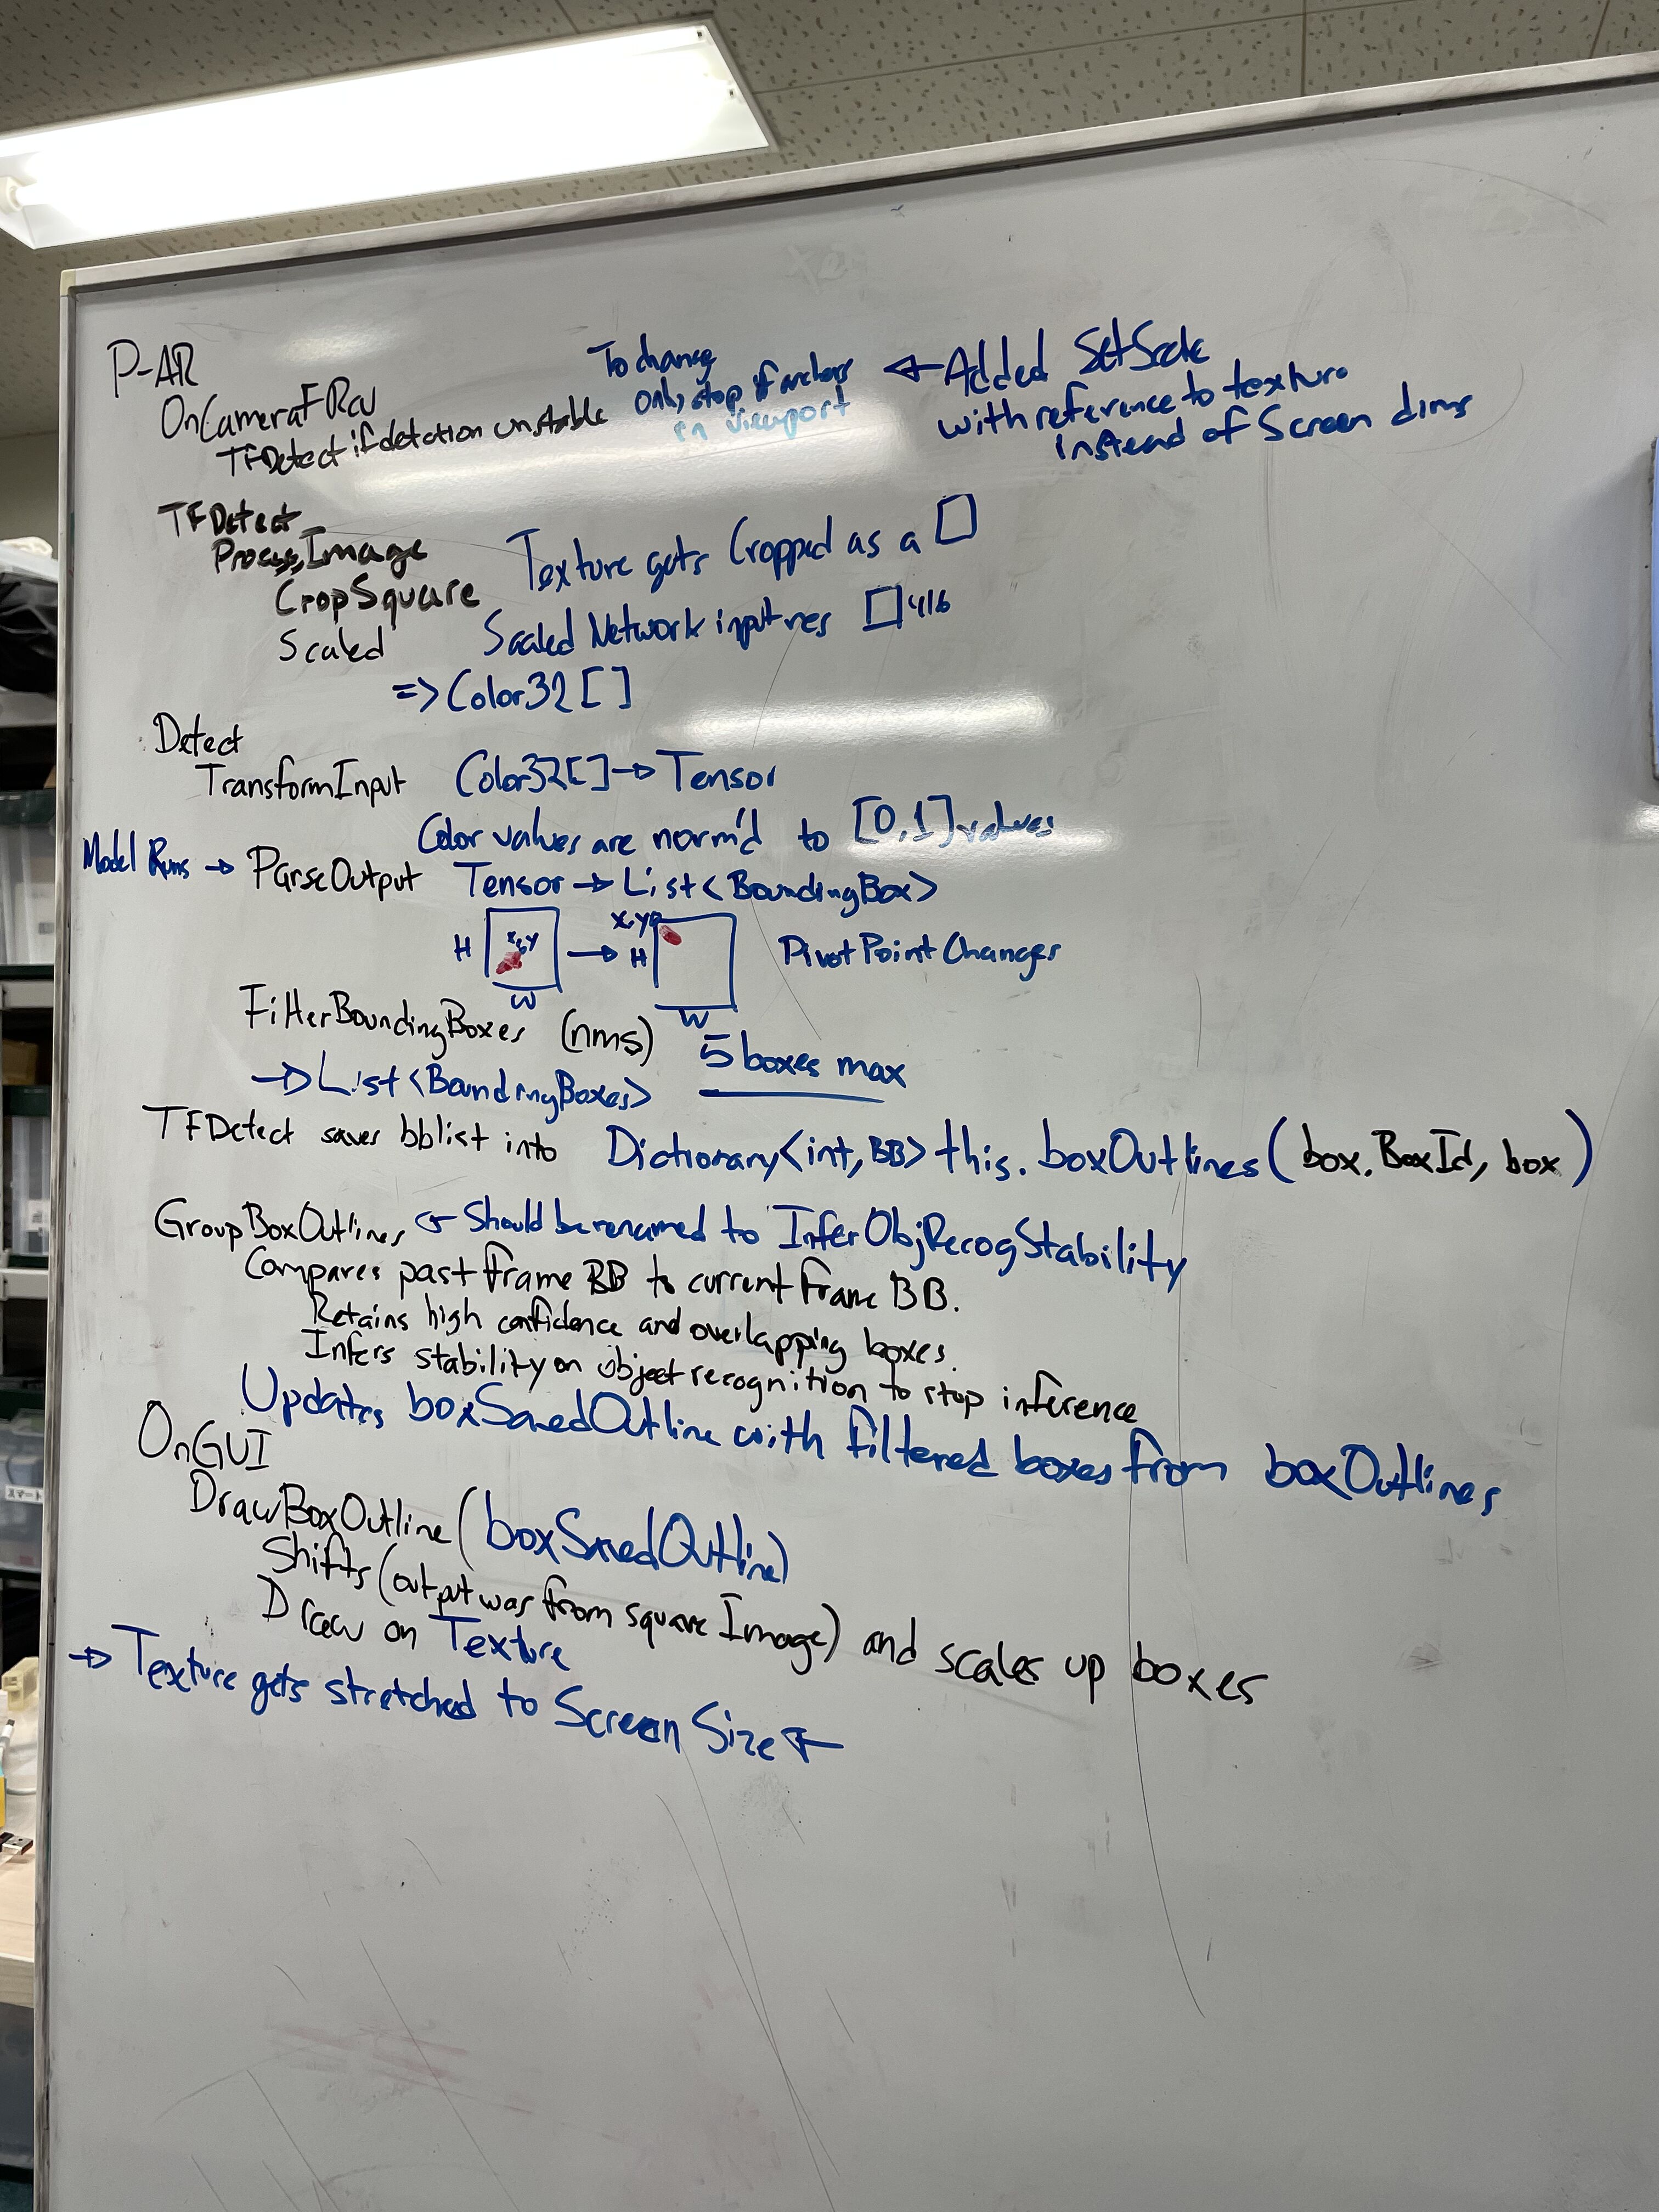 P-AR
OnCameraFRcv
TFDetect if detction unstable
To change
only stop if anchors
in viewport
← Added SetScale
with reference to texture
instead of Screen dims
TFDetect
Process Image
CropSquare
Texture gets Cropped as a □
Scaled
Scaled Network input res □ 416
=> Color32[]
Detect
TransformInput
Color32[] → Tensor
Color values are norm'd to [0,1] values
Model Runs → ParseOutput
Tensor → List<BoundingBox>
H x,y W → x,y H W
Pivot Point Changes
FilterBoundingBoxes (nms)
5 boxes max
→ List<BoundingBoxes>
TFDetect saves bblist into Dictionary<int, BB> this.boxOutlines(box.BoxId, box)
GroupBoxOutlines ← Should be renamed to InferObjRecogStability
Compares past frame BB to current frame BB.
Retains high confidence and overlapping boxes.
Infers stability on object recognition to stop inference
Updates boxSavedOutline with filtered boxes from boxOutlines
OnGUI
DrawBoxOutline(boxSavedOutline)
Shifts (output was from square Image) and scales up boxes
Draw on Texture
→ Texture gets stretched to Screen Size ←
スマート